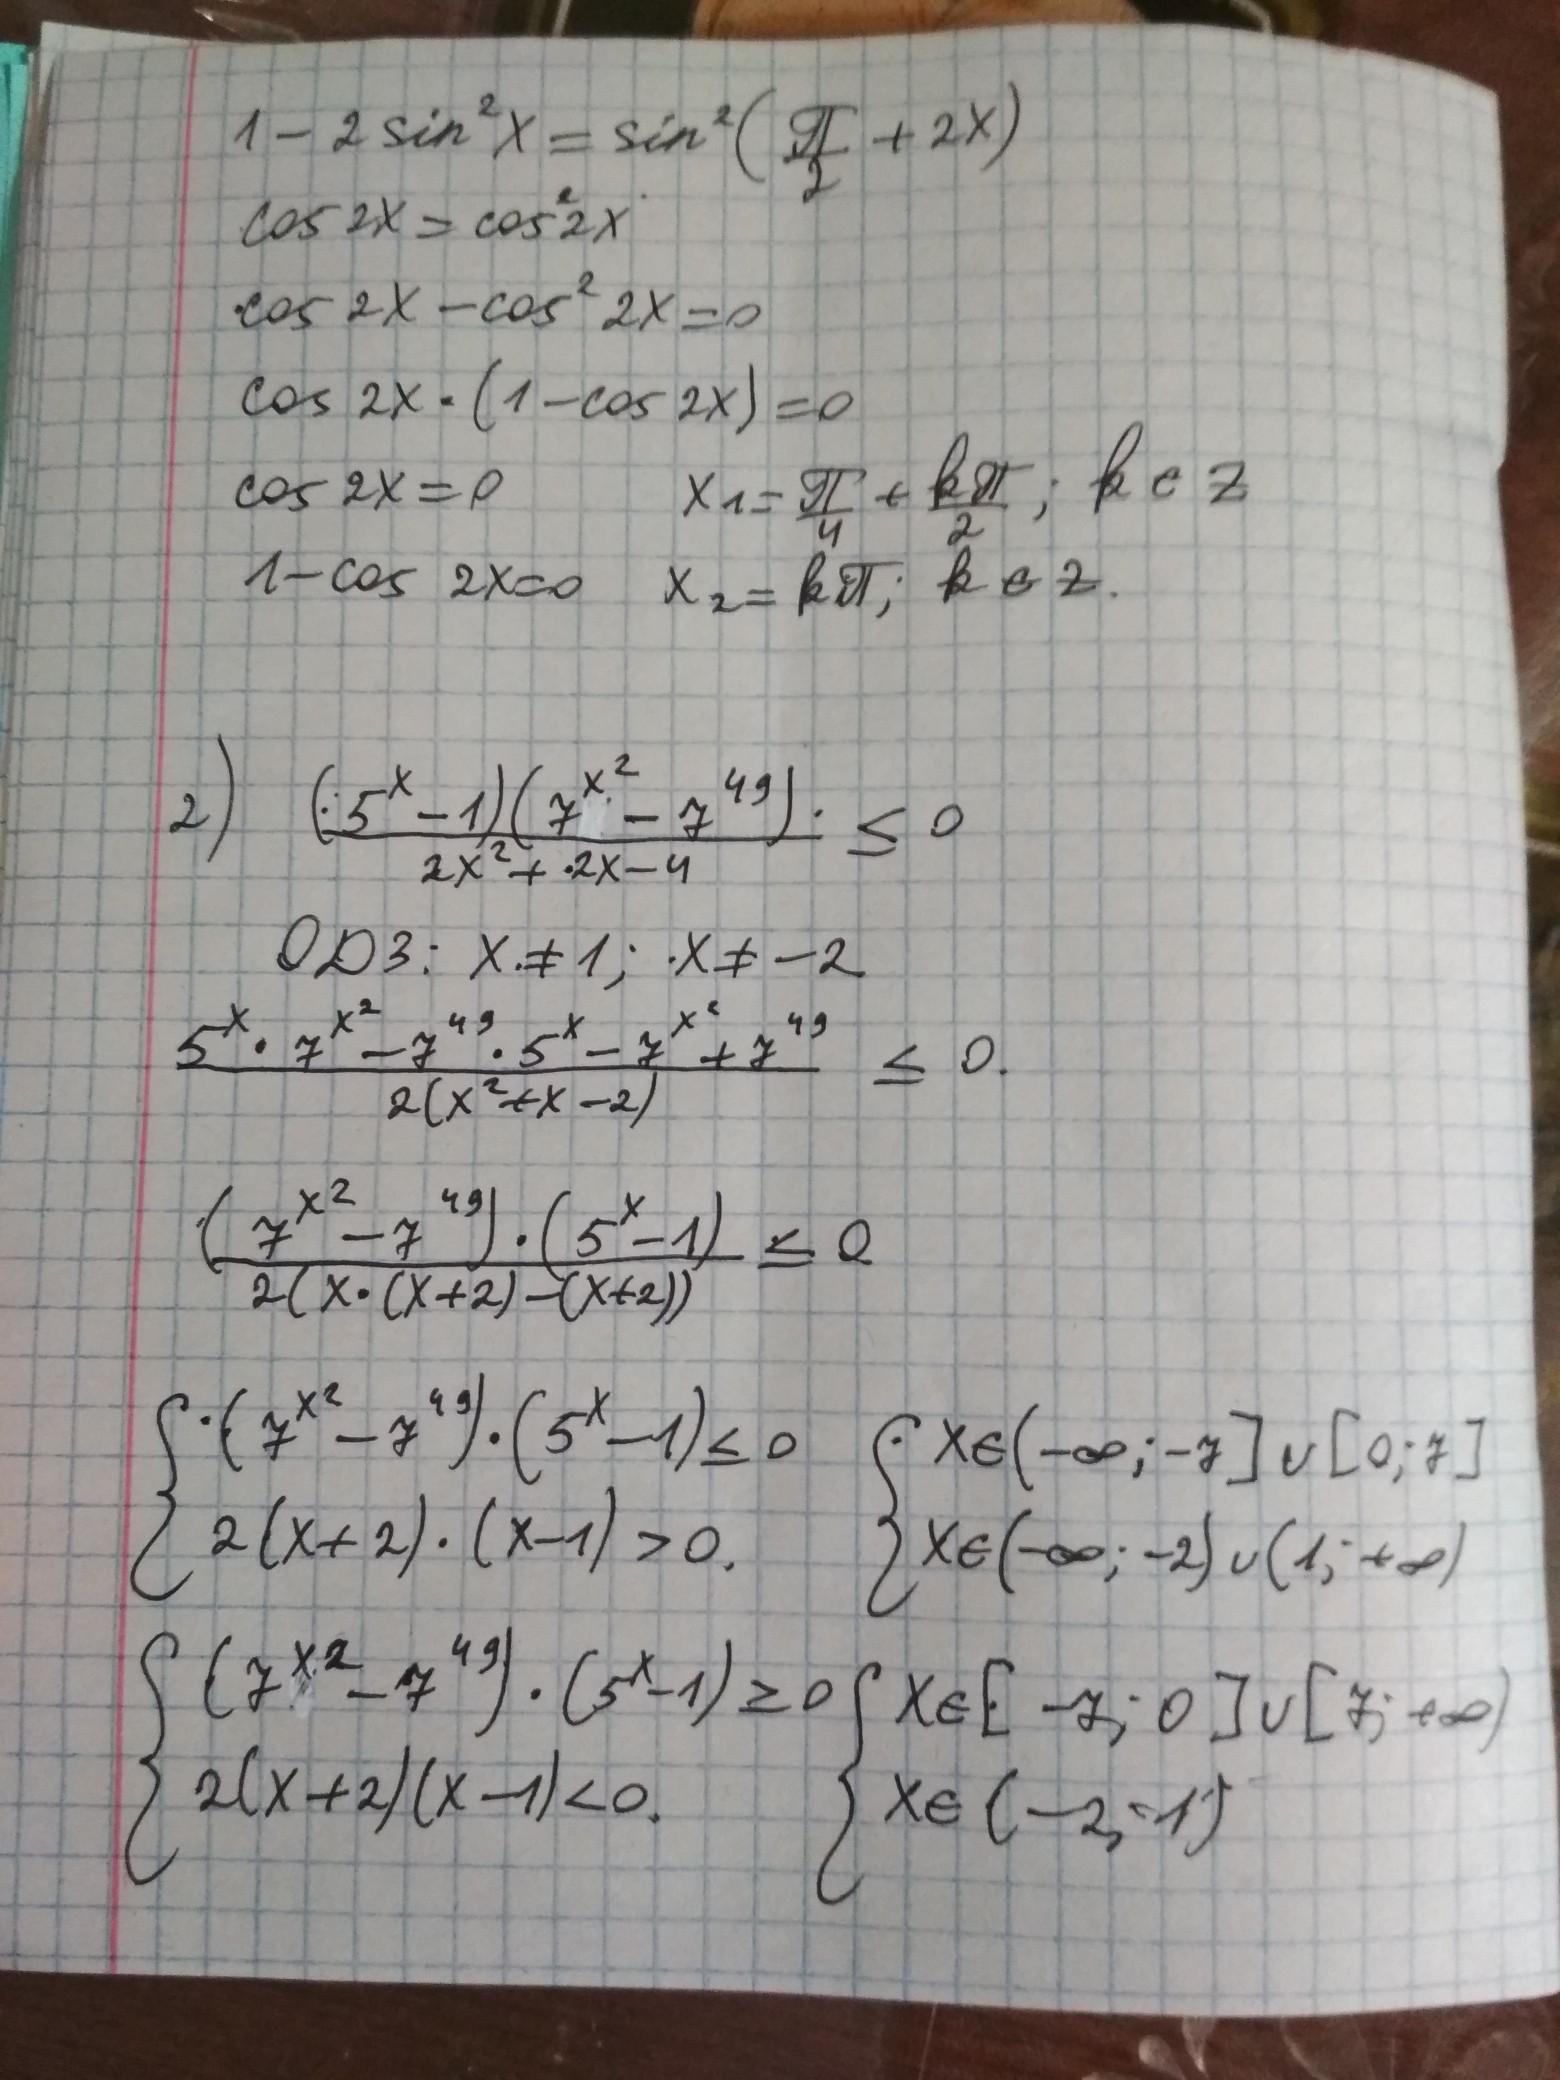 1 − 2 sin²x = sin²(π/2 + 2x)
cos 2x = cos²2x
cos 2x − cos² 2x = 0
cos 2x · (1 − cos 2x) = 0
cos 2x = 0 x₁ = π/4 + kπ/2; k ∈ z
1 − cos 2x = 0 x₂ = kπ; k ∈ z.
2) (5^x − 1)(7^(x²) − 7^49) / (2x² + 2x − 4) ≤ 0
ОДЗ: x ≠ 1; x ≠ −2
(5^x · 7^(x²) − 7^49 · 5^x − 7^(x²) + 7^49) / (2(x² + x − 2)) ≤ 0.
(7^(x²) − 7^49) · (5^x − 1) / (2(x · (x+2) − (x+2))) ≤ 0
{ (7^(x²) − 7^49) · (5^x − 1) ≤ 0 { x ∈ (−∞; −7] ∪ [0; 7]
2(x+2) · (x−1) > 0. x ∈ (−∞; −2) ∪ (1; +∞)
{ (7^(x²) − 7^49) · (5^x − 1) ≥ 0 { x ∈ [−7; 0] ∪ [7; +∞)
2(x+2)(x−1) < 0. x ∈ (−2; 1)